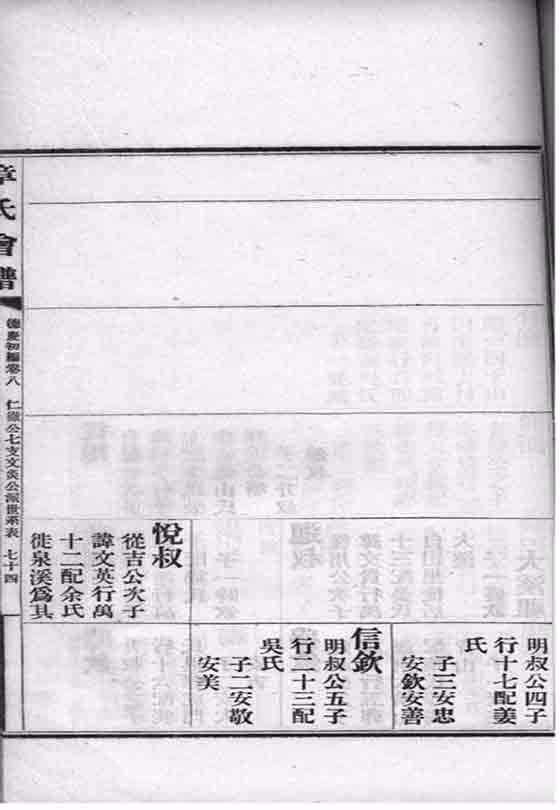 明叔公四子
行十七配姜
氏
子三安忠
安欽安善
信欽
明叔公五子
行二十三配
吳氏
子二安敬
安美
悅叔
從吉公次子
諱文英行萬
十二配余氏
徙泉溪爲其
章氏會譜
德慶初編卷八
仁徹公七支文炎公派世系表
七十四